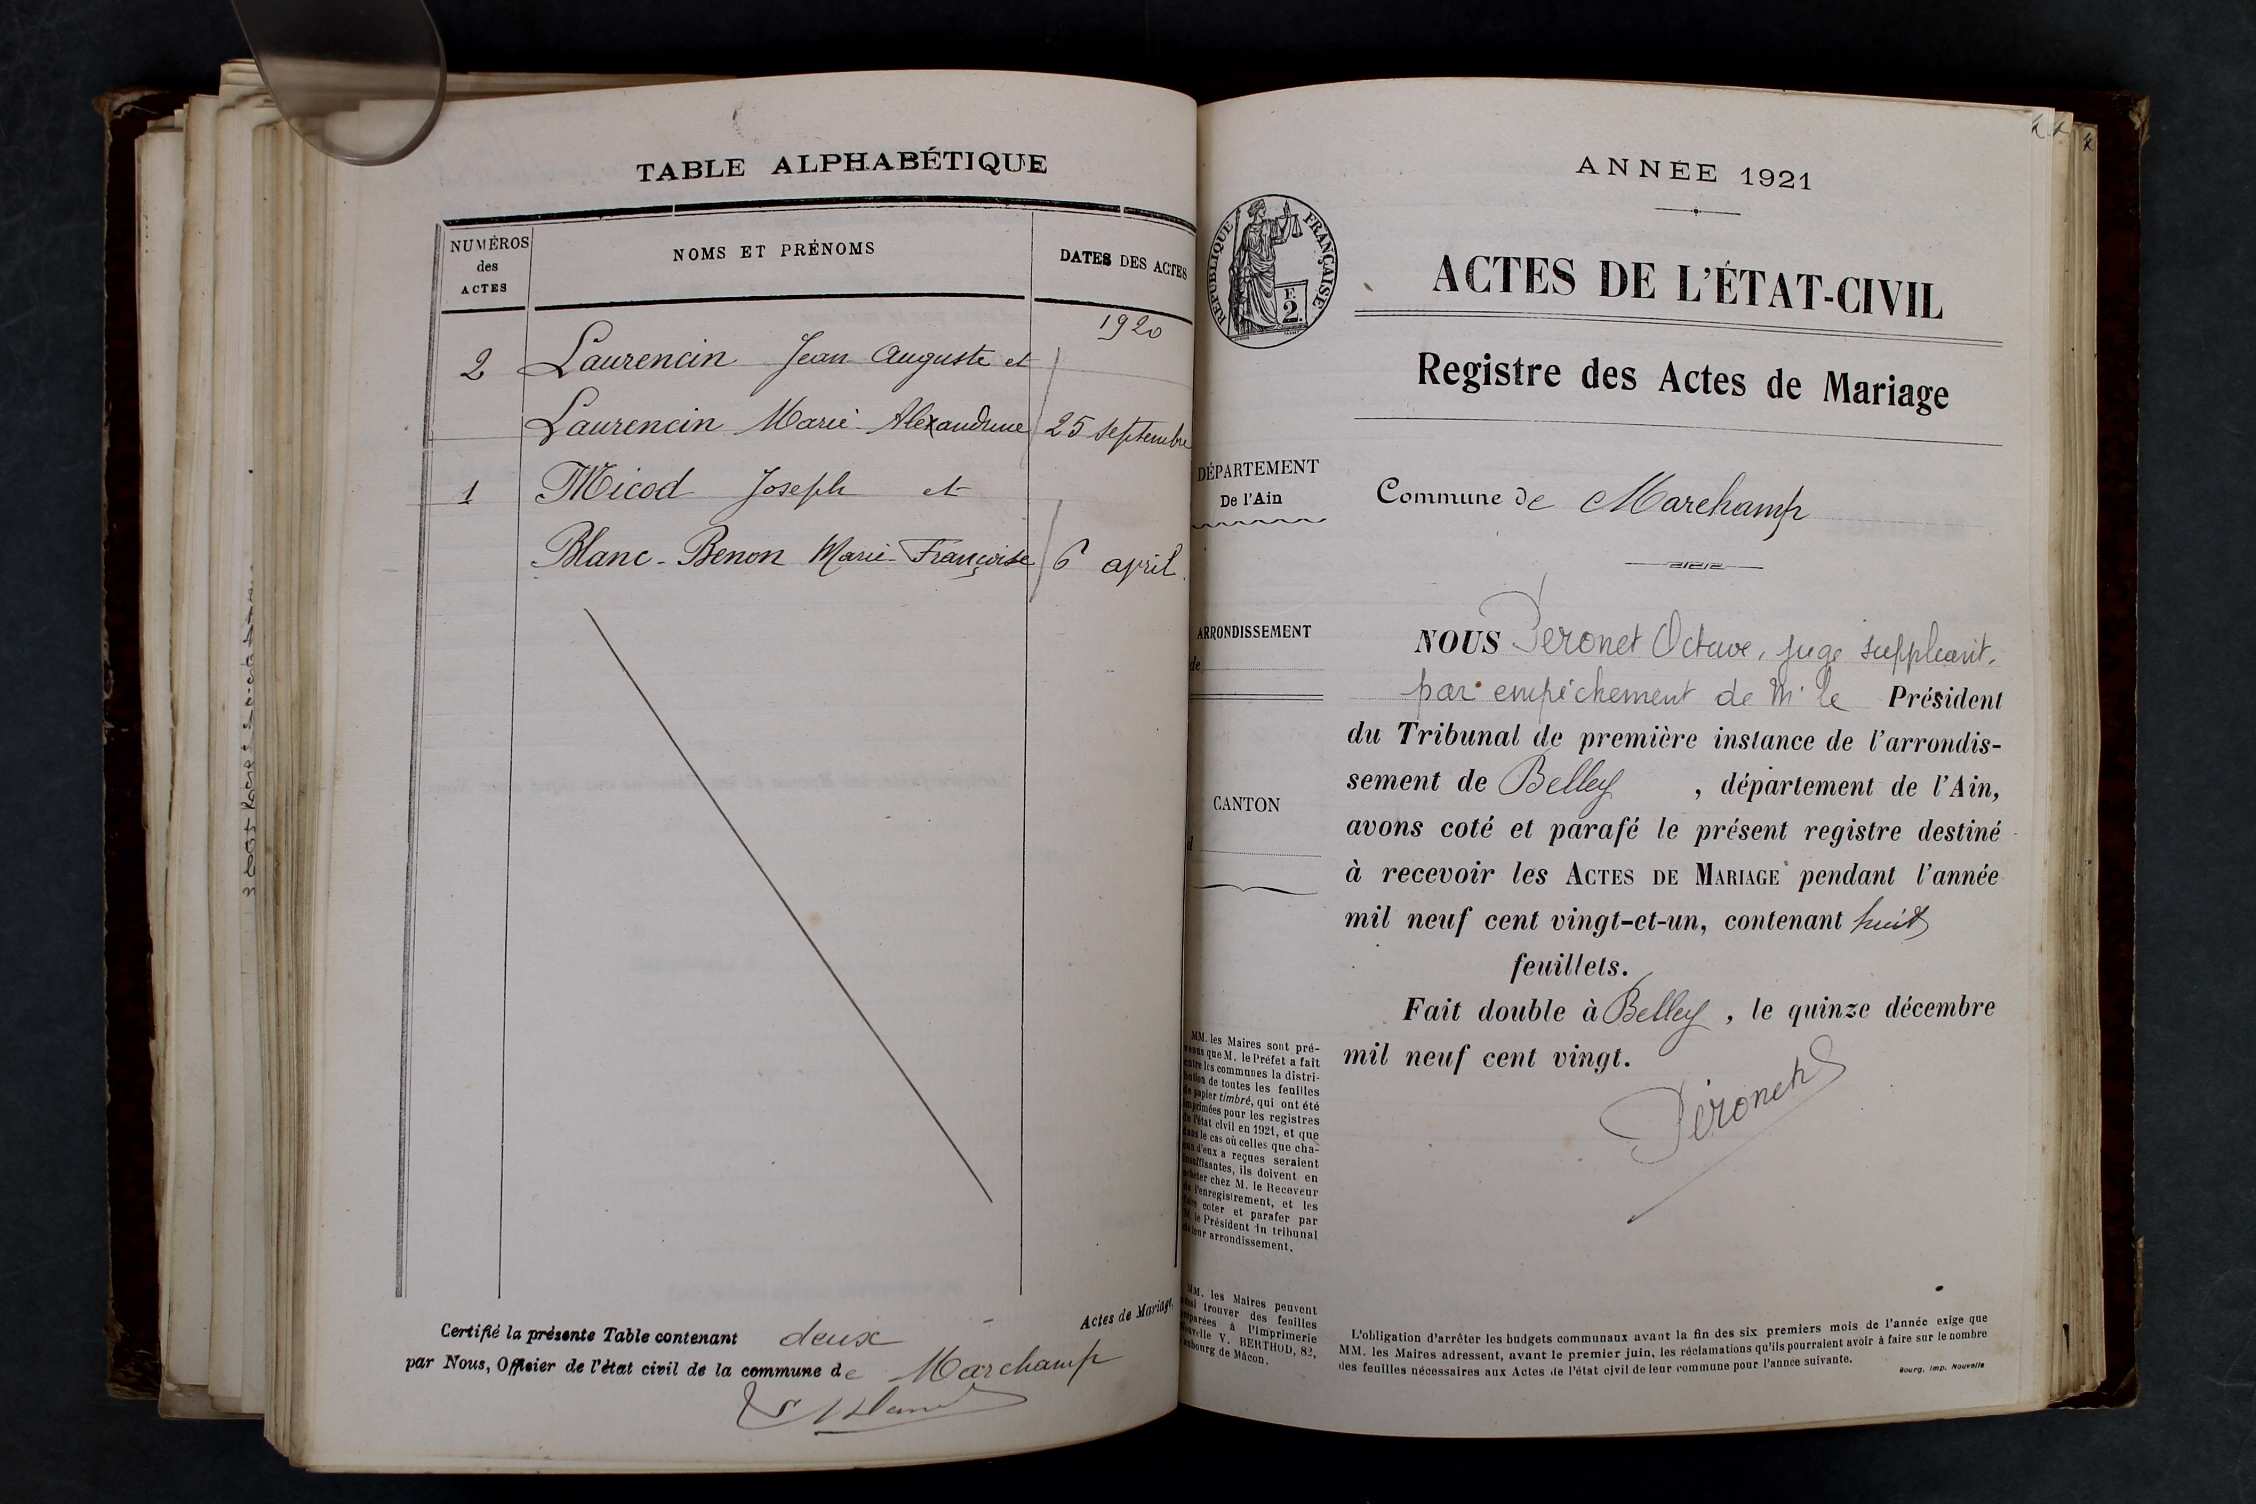 TABLE ALPHABÉTIQUE
NUMÉROS
des
ACTES
NOMS ET PRÉNOMS
DATES DES ACTES
1920
2 Laurencin Jean Auguste et
Laurencin Marie-Alexandrine 25 septembre
1 Micod Joseph et
Blanc-Benon Marie-Françoise 6 avril.
Certifié la présente Table contenant deux Actes de Mariage,
par Nous, Officier de l'état civil de la commune de Marchamp
ANNÉE 1921
RÉPUBLIQUE FRANÇAISE
F.
2
ACTES DE L'ÉTAT-CIVIL
Registre des Actes de Mariage
DÉPARTEMENT
De l'Ain
Commune de Marchamp
ARRONDISSEMENT
de
CANTON
d
NOUS Péronet Octave, juge suppléant,
par empêchement de Mr le Président
du Tribunal de première instance de l'arrondis-
sement de Belley, département de l'Ain,
avons coté et parafé le présent registre destiné
à recevoir les ACTES DE MARIAGE pendant l'année
mil neuf cent vingt-et-un, contenant huit
feuillets.
Fait double à Belley, le quinze décembre
mil neuf cent vingt.
Péronet
MM. les Maires sont pré-
venus que M. le Préfet a fait
entre les communes la distri-
bution de toutes les feuilles
de papier timbré, qui ont été
imprimées pour les registres
de l'état civil en 1921, et que
dans le cas où celles que cha-
cun d'eux a reçues seraient
insuffisantes, ils doivent en
acheter chez M. le Receveur
de l'enregistrement, et les
faire coter et parafer par
M. le Président du tribunal
de leur arrondissement.
MM. les Maires peuvent
aussi trouver des feuilles
préparées à l'Imprimerie
Nouvelle V. BERTHOD, 82,
faubourg de Mâcon.
L'obligation d'arrêter les budgets communaux avant la fin des six premiers mois de l'année exige que
MM. les Maires adressent, avant le premier juin, les réclamations qu'ils pourraient avoir à faire sur le nombre
des feuilles nécessaires aux Actes de l'état civil de leur commune pour l'année suivante.
Bourg, Imp. Nouvelle